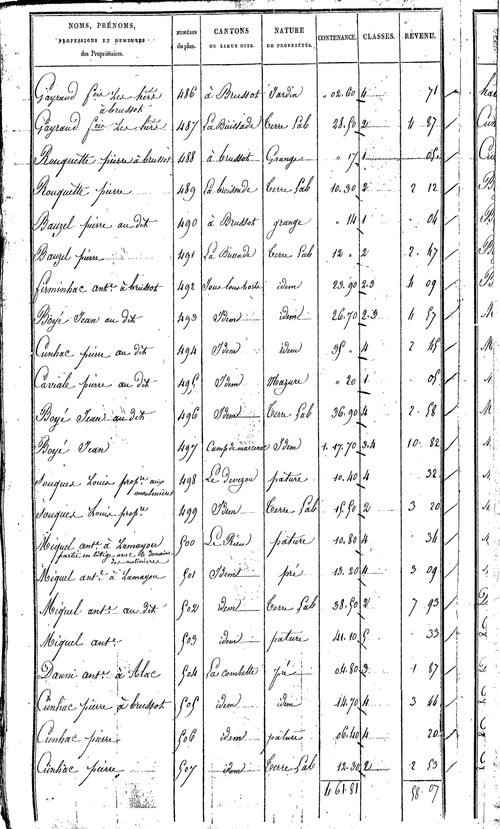 NOMS, PRÉNOMS,
PROFESSIONS ET DEMEURES
des Propriétaires.
NUMÉROS
du plan.
CANTONS
OU LIEUX DITS.
NATURE
DE PROPRIÉTÉS.
CONTENANCE.
CLASSES.
REVENU.
Gayraud les héré 486 à Brussot Jardin " 02.60 4 71
à brussot
Gayraud les héré 487 Terre Lab 28.50 2 4 87
Rouquette pierre à brussot 488 à brussot Grange " 17 1
Rouquette pierre 489 Terre Lab 10.30 2 2 12
Bauzel pierre au dit 490 à Brussot grange " 14 1 04
Bauzel pierre 491 Terre Lab 12 " 2 2.47
firminhac ant.e à brussot 492 idem 23.90 2.3 4 09
Boyé Jean au dit 493 Idem idem 26.70 2.3 4 57
Cunhac pierre au dit 494 Idem idem 35 " 4 2 45
Caviale pierre au dit 495 Idem Mazure " 20 1 05
Boyé Jean au dit 496 Idem Terre Lab 36.90 4 2.58
Boyé Jean 497 Camp de Idem 1.17.70 3.4 10.82
Louis prop.re aux 498 Le devezou pature 10.40 4 32
Louis prop.re 499 Idem Terre Lab 15.50 2 3 20
Miquel ant.e à Lamayou 500 pature 10.80 4 34
partie en litige avec le domaine
Miquel ant.e à Lamayou 501 Idem pré 13.20 4 3 09
Miquel ant.e au dit 502 idem Terre Lab 38.50 2 7 93
Miquel ant.e 503 idem pature 41.10 5 33
ant.e à 504 La combette pré 04.80 3 1 87
Cunhac pierre à brussot 505 idem idem 14.70 4 3 46
Cunhac pierre 506 idem pature 06.40 4 20
Cunhac pierre 507 idem Terre Lab 12.30 2 2 53
4.61.81 58.07